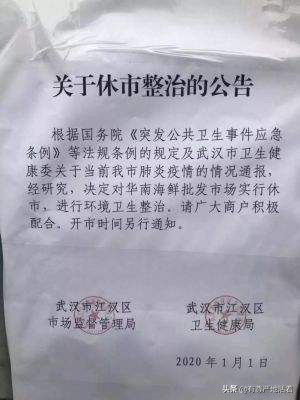 关于休市整治的公告
根据国务院《突发公共卫生事件应急
条例》等法规条例的规定及武汉市卫生健
康委关于当前我市肺炎疫情的情况通报，
经研究，决定对华南海鲜批发市场实行休
市，进行环境卫生整治。请广大商户积极
配合。开市时间另行通知。
武汉市江汉区 武汉市江汉区
市场监督管理局 卫生健康局
2020年1月1日
头条@有商产地站着